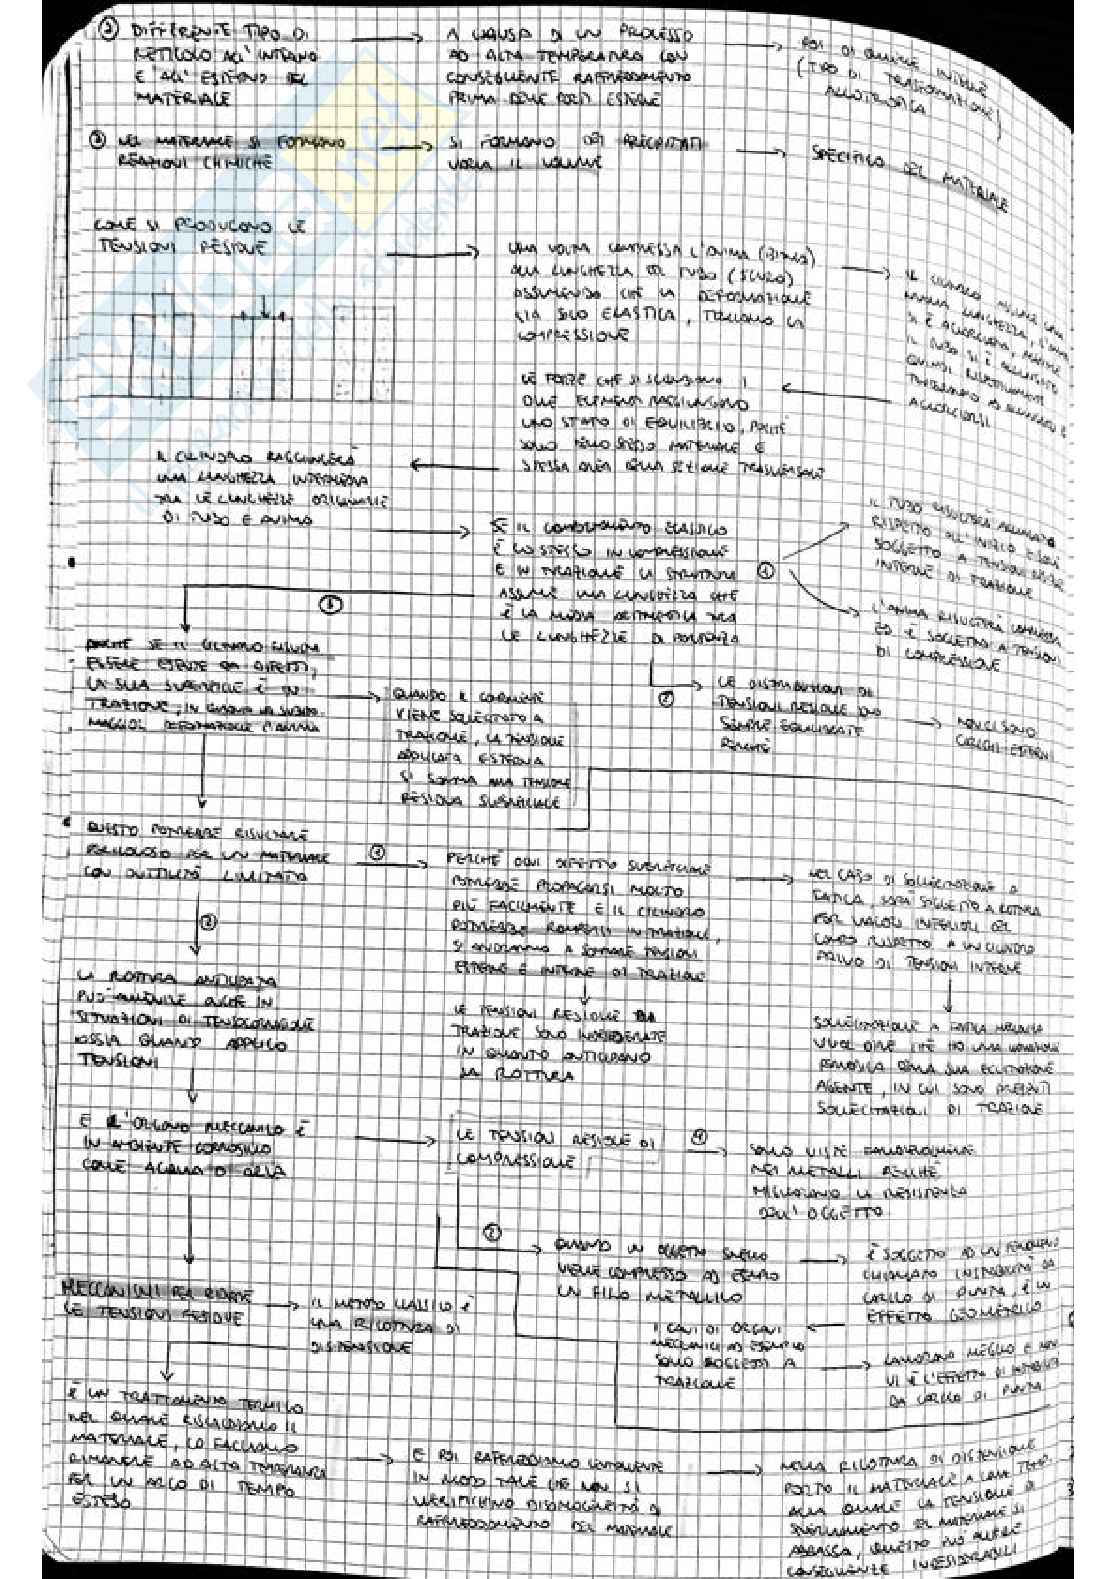 ② DIFFERENTE TIPO DI
RETICOLO ALL'INTERNO
E ALL'ESTERNO DEL
MATERIALE
A CAUSA DI UN PROCESSO
AD ALTA TEMPERATURA CON
CONSEGUENTE RAFFREDDAMENTO
PRIMA DELLE PARTI ESTERNE
POI DI QUELLE INTERNE
(TIPO DI TRASFORMAZIONE)
ALLOTROPICA
③ NEL MATERIALE SI FORMANO
REAZIONI CHIMICHE
SI FORMANO DEI PRECIPITATI
VARIA IL VOLUME
SPECIFICO DEL MATERIALE
COME SI PRODUCONO LE
TENSIONI RESIDUE
UNA VOLTA COMPRESSA L'ANIMA (BIANCO)
ALLA LUNGHEZZA DEL TUBO (SCURO)
ASSUMENDO CHE LA DEFORMAZIONE
SIA SOLO ELASTICA, TOGLIAMO LA
COMPRESSIONE
IL CILINDRO ASSUME UNA
LUNGHEZZA, L'ANIMA
SI È ACCORCIATA, MENTRE
IL TUBO SI È ALLUNGATO
QUINDI RISPETTIVAMENTE
TENDERANNO AD ALLUNGARSI E
ACCORCIARSI
LE FORZE CHE SI SCAMBIANO I
DUE ELEMENTI RAGGIUNGONO
UNO STATO DI EQUILIBRIO, POICHÉ
SONO DELLO STESSO MATERIALE E
STESSA AREA DELLA SEZIONE TRASVERSALE
IL CILINDRO RAGGIUNGERÀ
UNA LUNGHEZZA INTERMEDIA
TRA LE LUNGHEZZE ORIGINARIE
DI TUBO E ANIMA
SE IL COMPORTAMENTO ELASTICO
È LO STESSO IN COMPRESSIONE
E IN TRAZIONE LA STRUTTURA
ASSUME UNA LUNGHEZZA CHE
È LA MEDIA ARITMETICA TRA
LE LUNGHEZZE DI PARTENZA
①
IL TUBO RISULTERÀ ALLUNGATO
RISPETTO ALL'INIZIO E SARÀ
SOGGETTO A TENSIONI RESIDUE
INTERNE DI TRAZIONE
L'ANIMA RISULTERÀ COMPRESSA
ED È SOGGETTA A TENSIONI
DI COMPRESSIONE
②
LE DISTRIBUZIONI DI
TENSIONI RESIDUE SONO
SEMPRE EQUILIBRATE
PERCHÉ
NON CI SONO
CARICHI ESTERNI
③
ANCHE SE IL CILINDRO RISULTA
ESSERE ESENTE DA DIFETTI,
LA SUA SUPERFICIE È IN
TRAZIONE, IN QUANTO HA SUBITO
MAGGIOR DEFORMAZIONE L'ANIMA
QUANDO IL COMPONENTE
VIENE SOLLECITATO A
TRAZIONE, LA TENSIONE
APPLICATA ESTERNA
SI SOMMA ALLA TENSIONE
RESIDUA SUPERFICIALE
QUESTO POTREBBE RISULTARE
PERICOLOSO PER UN MATERIALE
CON DUTTILITÀ LIMITATA
①
PERCHÉ OGNI DIFETTO SUPERFICIALE
POTREBBE PROPAGARSI MOLTO
PIÙ FACILMENTE E IL CILINDRO
POTREBBE ROMPERSI IN TRAZIONE,
SI ANDRANNO A SOMMARE TENSIONI
ESTERNE E INTERNE DI TRAZIONE
NEL CASO DI SOLLECITAZIONE A
FATICA, SARÀ SOGGETTO A ROTTURA
PER VALORI INFERIORI DEL
CARICO RISPETTO A UN CILINDRO
PRIVO DI TENSIONI INTERNE
②
LA ROTTURA ANTICIPATA
PUÒ AVVENIRE ANCHE IN
SITUAZIONI DI TENSOCORROSIONE
OSSIA QUANDO APPLICO
TENSIONI
LE TENSIONI RESIDUE DI
TRAZIONE SONO INDESIDERATE
IN QUANTO ANTICIPANO
LA ROTTURA
SOLLECITAZIONE A FATICA MECCANICA
VUOL DIRE CHE HO UNA VARIAZIONE
PERIODICA DELLA SUA ECCITAZIONE
AGENTE, IN CUI SONO PRESENTI
SOLLECITAZIONI DI TRAZIONE
E L'ORGANO MECCANICO È
IN AMBIENTE CORROSIVO
COME ACQUA O ARIA
LE TENSIONI RESIDUE DI
COMPRESSIONE
①
SONO VISTE FAVOREVOLMENTE
NEI METALLI PERCHÉ
MIGLIORANO LA RESISTENZA
DELL'OGGETTO
②
QUANDO UN OGGETTO SNELLO
VIENE COMPRESSO AD ESEMPIO
UN FILO METALLICO
È SOGGETTO AD UN FENOMENO
CHIAMATO INSTABILITÀ DA
CARICO DI PUNTA, È UN
EFFETTO GEOMETRICO
I CAVI DI ORGANI
MECCANICI AD ESEMPIO
SONO SOGGETTI A
TRAZIONE
LAVORANO MEGLIO E NON
VI È L'EFFETTO DI INSTABILITÀ
DA CARICO DI PUNTA
MECCANISMI PER RIDURRE
LE TENSIONI RESIDUE
IL METODO CLASSICO È
UNA RICOTTURA DI
DISTENSIONE
È UN TRATTAMENTO TERMICO
NEL QUALE RISCALDIAMO IL
MATERIALE, LO FACCIAMO
RIMANERE AD ALTA TEMPERATURA
PER UN ARCO DI TEMPO
ESTESO
E POI RAFFREDDIAMO LENTAMENTE
IN MODO TALE CHE NON SI
VERIFICHINO DISOMOGENEITÀ DI
RAFFREDDAMENTO DEL MATERIALE
NELLA RICOTTURA DI DISTENSIONE
PORTO IL MATERIALE A UNA TEMP.
ALLA QUALE LA TENSIONE DI
SNERVAMENTO DEL MATERIALE SI
ABBASSA, QUESTO PUÒ AVERE
CONSEGUENZE INDESIDERABILI